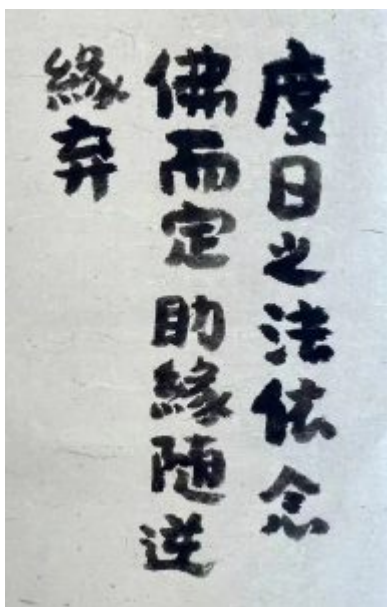 度日之法依念
佛而定助緣随逆
緣弃